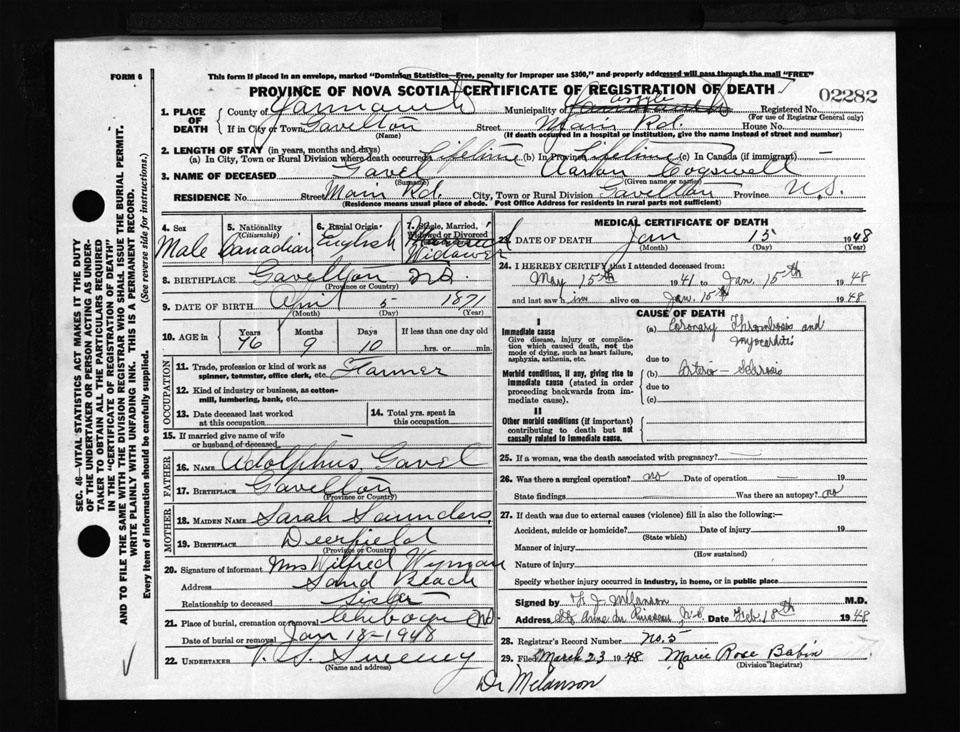 FORM 6
This form if placed in an envelope, marked "Dominion Statistics—Free, penalty for improper use $300," and properly addressed will pass through the mail "FREE"
PROVINCE OF NOVA SCOTIA—CERTIFICATE OF REGISTRATION OF DEATH
02282
1. PLACE OF DEATH
County of Yarmouth Municipality of Argyle Registered No.
(For use of Registrar General only)
If in City or Town Gavelton Street Main Rd. House No.
(Name) (If death occurred in a hospital or institution, give the name instead of street and number)
2. LENGTH OF STAY (in years, months and days)
(a) In City, Town or Rural Division where death occurred Lifetime (b) In Province Lifetime (c) In Canada (if immigrant) —
3. NAME OF DECEASED Gavel Cogswell
(Surname) (Given name or names)
RESIDENCE No. Street Main Rd. City, Town or Rural Division Gavelton Province N.S.
(Residence means usual place of abode. Post Office Address for residents in rural parts not sufficient)
4. Sex
Male
5. Nationality
(Citizenship)
Canadian
6. Racial Origin
English
7. Single, Married,
Widowed or Divorced
Married
Widower
8. BIRTHPLACE Gavelton N.S.
(Province or Country)
9. DATE OF BIRTH April 5 1871
(Month) (Day) (Year)
10. AGE in
Years Months Days If less than one day old
76 9 10 hrs. or min.
OCCUPATION
11. Trade, profession or kind of work as Farmer
spinner, teamster, office clerk, etc.
12. Kind of industry or business, as cotton-
mill, lumbering, bank, etc.
13. Date deceased last worked
at this occupation
14. Total yrs. spent in
this occupation
15. If married give name of wife
or husband of deceased —
FATHER
16. NAME Adolphus Gavel
17. BIRTHPLACE Gavelton
(Province or Country)
MOTHER
18. MAIDEN NAME Sarah Saunders
19. BIRTHPLACE Deerfield
(Province or Country)
20. Signature of informant Mrs Wilfred Wyman
Address Sand Beach
Relationship to deceased Sister
21. Place of burial, cremation or removal Chebogue N.S.
Date of burial or removal Jan 18-1948
22. UNDERTAKER V. S. Sweeney
(Name and address)
MEDICAL CERTIFICATE OF DEATH
23. DATE OF DEATH Jan 15 1948
(Month) (Day) (Year)
24. I HEREBY CERTIFY that I attended deceased from:
May 15th 1941 to Jan. 15th 1948
and last saw him alive on Jan. 15th 1948
CAUSE OF DEATH
I
Immediate cause
Give disease, injury or compli-
cation which caused death, not the
mode of dying, such as heart failure,
asphyxia, asthenia, etc.
(a) Coronary Thrombosis and
Myocarditis
due to
Morbid conditions, if any, giving rise to
immediate cause (stated in order
proceeding backwards from im-
mediate cause).
(b) Arterio-Sclerosis
due to
(c)
II
Other morbid conditions (if important)
contributing to death but not
causally related to immediate cause.
25. If a woman, was the death associated with pregnancy? —
26. Was there a surgical operation? no Date of operation — 19
State findings Was there an autopsy? no
27. If death was due to external causes (violence) fill in also the following:—
Accident, suicide or homicide? Date of injury 19
(State which)
Manner of injury
(How sustained)
Nature of injury
Specify whether injury occurred in industry, in home, or in public place
Signed by Melanson M.D.
Address Ste Anne du Ruisseau N.S. Date Feb. 18th 1948
28. Registrar's Record Number No. 5
29. Filed March 23 1948 Marie Rose Babin
(Division Registrar)
Dr Melanson
SEC. 46—VITAL STATISTICS ACT MAKES IT THE DUTY
OF THE UNDERTAKER OR PERSON ACTING AS UNDER-
TAKER TO OBTAIN ALL THE PARTICULARS REQUIRED
IN THE "CERTIFICATE OF REGISTRATION OF DEATH"
AND TO FILE THE SAME WITH THE DIVISION REGISTRAR WHO SHALL ISSUE THE BURIAL PERMIT.
WRITE PLAINLY WITH UNFADING INK. THIS IS A PERMANENT RECORD.
Every item of information should be carefully supplied. (See reverse side for instructions.)